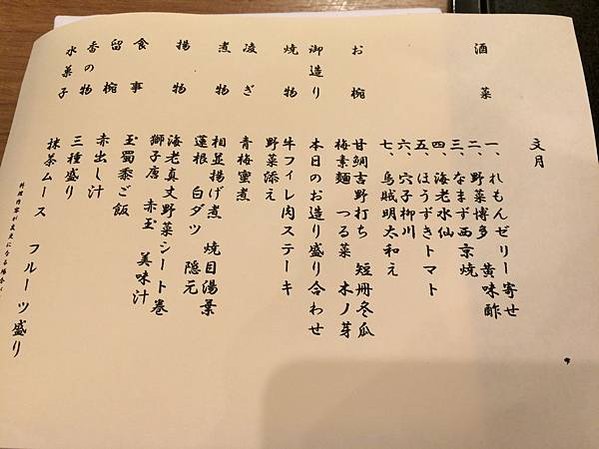 文月
酒菜
一、れもんゼリー寄せ
二、野菜博多 黄味酢
三、なまず西京焼
四、海老水仙
五、ほうずきトマト
六、穴子柳川
七、烏賊明太和え
お椀
甘鯛吉野打ち 短冊冬瓜
梅素麺 つる菜 木ノ芽
御造り
本日のお造り盛り合わせ
焼物
牛フィレ肉ステーキ
野菜添え
凌ぎ
青梅蜜煮
煮物
相並揚げ煮 焼目湯葉
蓮根 白ダツ 隠元
揚物
海老真丈野菜シート巻
獅子唐 赤玉 美味汁
食事
玉蜀黍ご飯
留椀
赤出し汁
香の物
三種盛り
水菓子
抹茶ムース フルーツ盛り
料理内容が変更になる場合